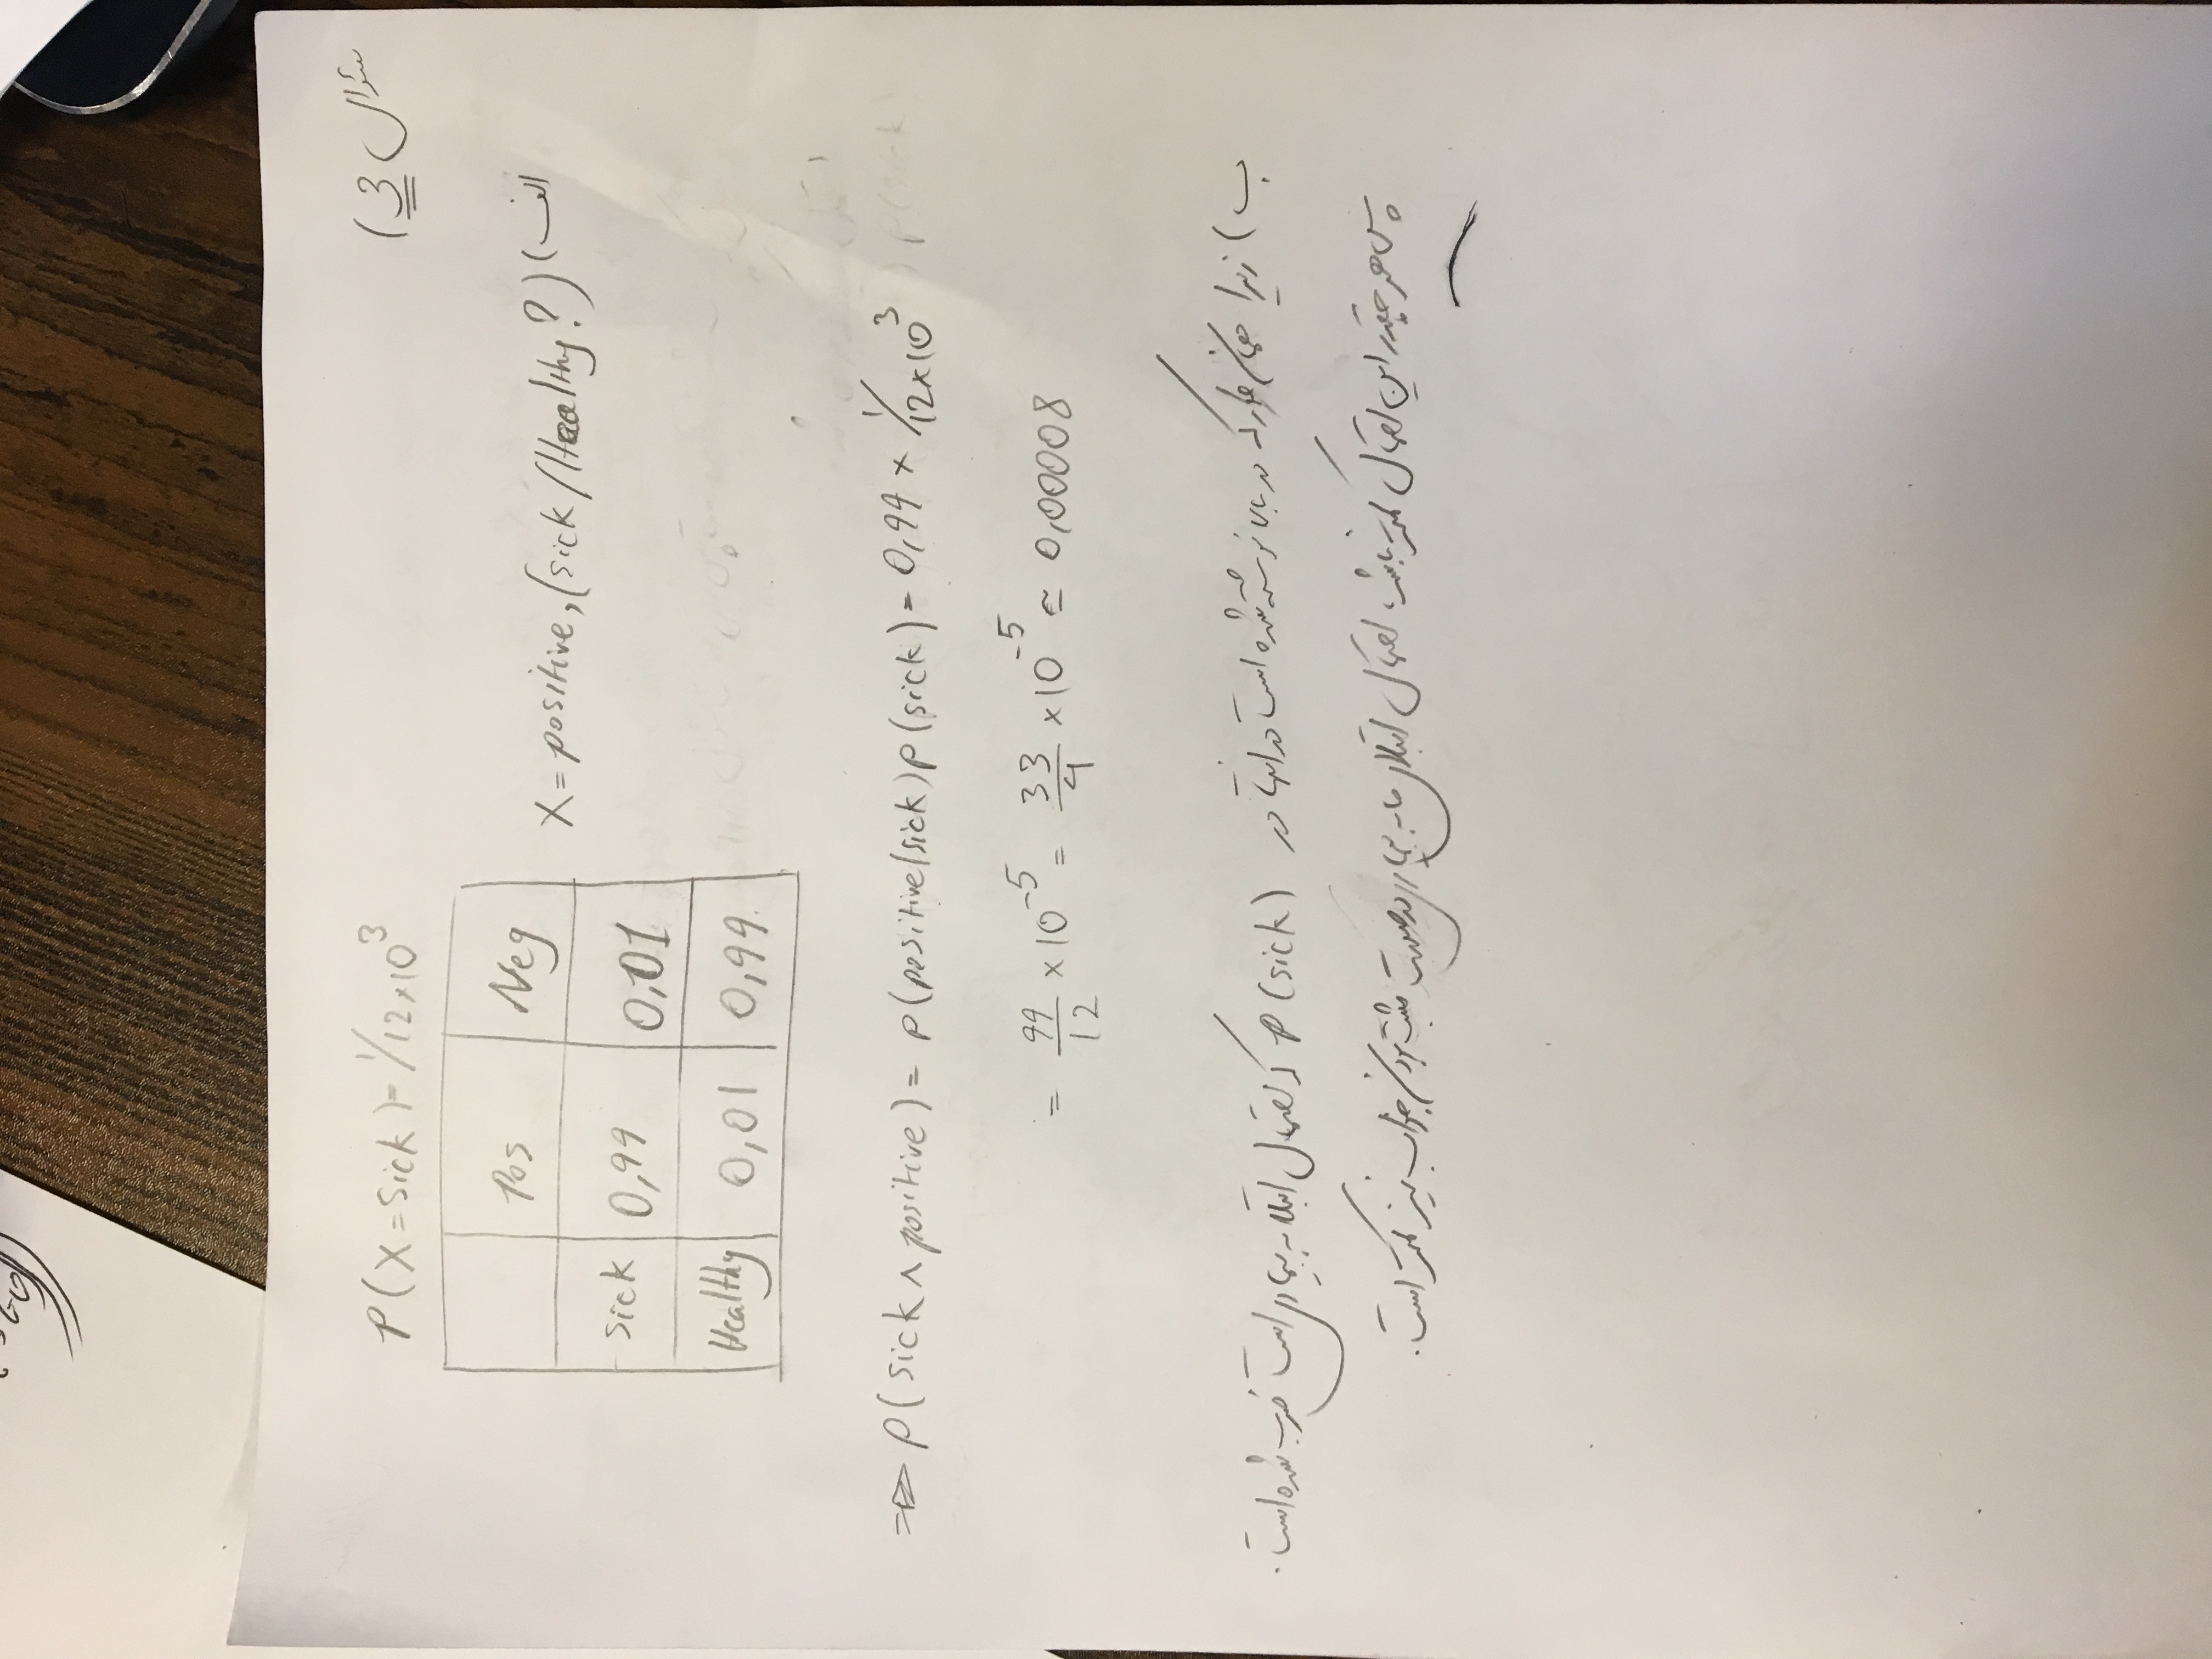 سؤال 3)
P(X=Sick)=1/12×10³
Pos Neg
Sick 0,99 0,01
Healthy 0,01 0,99
الف) X=positive,(sick/Healthy?)
⇒ P(sick ∧ positive) = P(positive|sick)P(sick) = 0,99 × 1/12×10³
= 99/12 ×10⁻⁵ = 33/4 ×10⁻⁵ ≃ 0,00008
ب) زیرا همانطور که در بالا نوشته شده است در انتها در P(sick) که احتمال ابتلا به بیماری است ضرب شده است.
پس هر چقدر این احتمال کمتر باشد، احتمال ابتلای ما به بیماری در صورت مثبت بودن جواب نیز کمتر است.